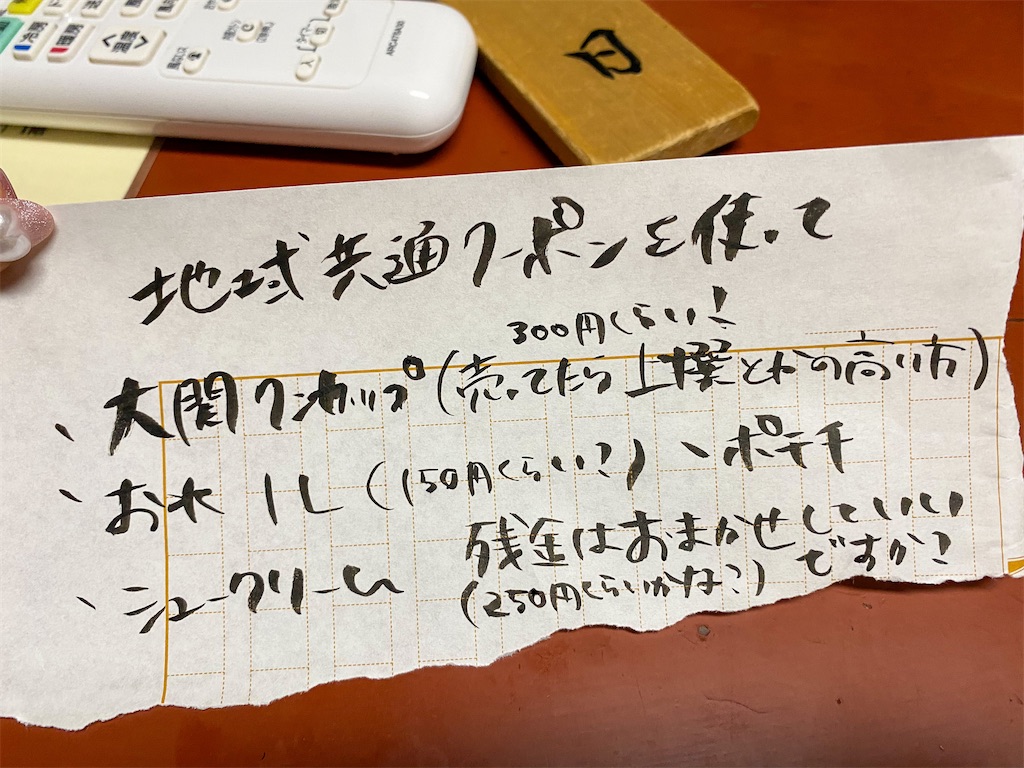 冷房
暖房
温度
切
入
ARC478A30
月
地域共通クーポンを使って
300円くらい!
、大関ワンカップ(売ってたら上撰とかの高い方)
、お水 1L(150円くらい?)、ポテチ
、シュークリーム 残金はおまかせしていい
(250円くらいかな?) ですか?